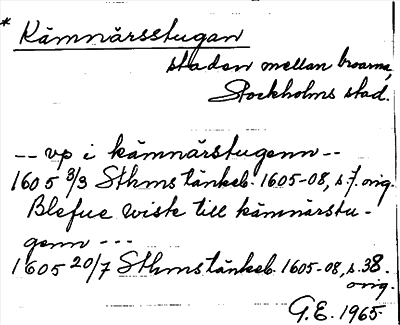 * Kämnärsstugan
staden mellan broarna,
Stockholms stad.
-- vp i kämnärstugenn --
1605 3/3 Sthms tänkeb. 1605-08, s. 7. orig.
Blefue wiste till kämnärstu-
genn ---
1605 20/7 Sthms tänkeb. 1605-08, s. 38.
orig.
G.E. 1965